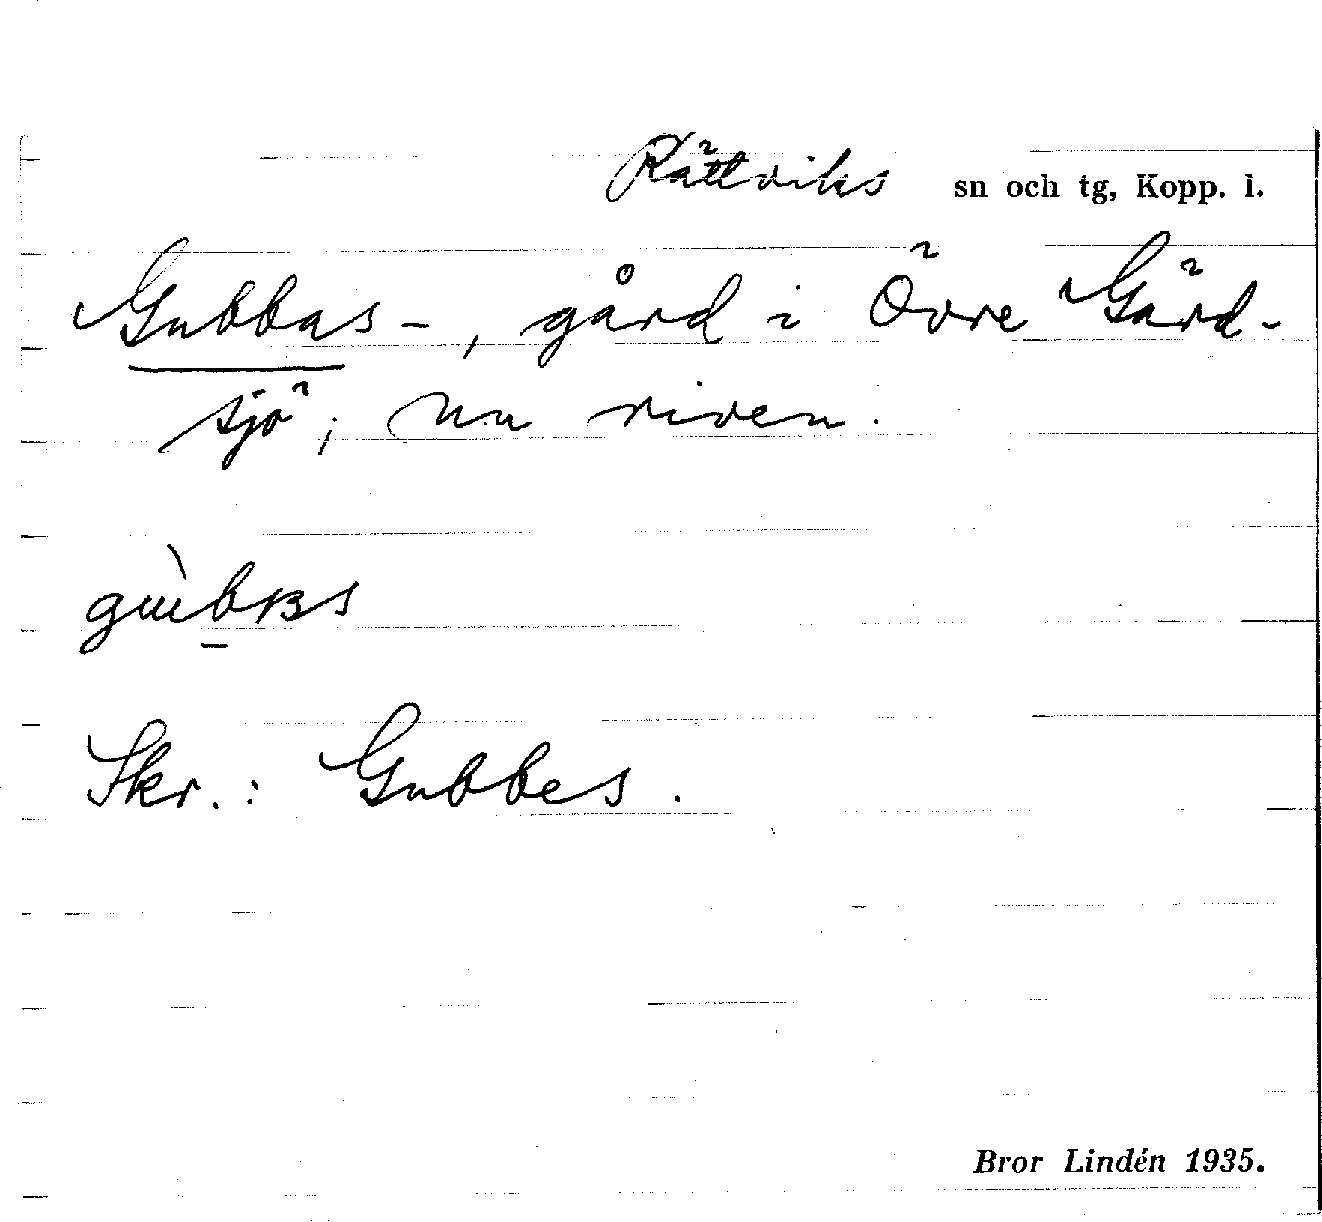 Rättviks sn och tg, Kopp. l.
Gubbas-, gård i Övre Gärd-
sjö; nu riven.
Skr.: Gubbes.
Bror Lindén 1935.